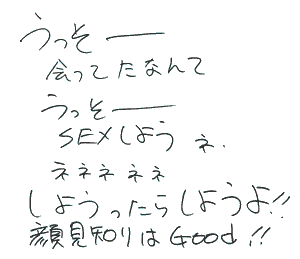 うっそー
会ってたなんて
うっそー
SEXしよう ネ.
ネネネネネ
しようったらしようよ!!
顔見知りはGood!!